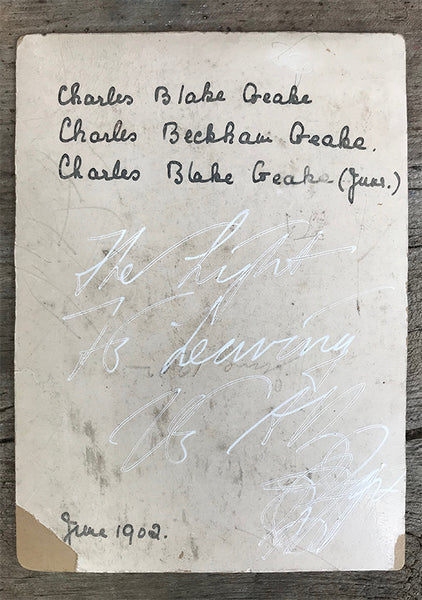 Charles Blake Geake
Charles Beckham Geake.
Charles Blake Geake (Junr.)
The Light
Is Leaving
Us All
June 1902.